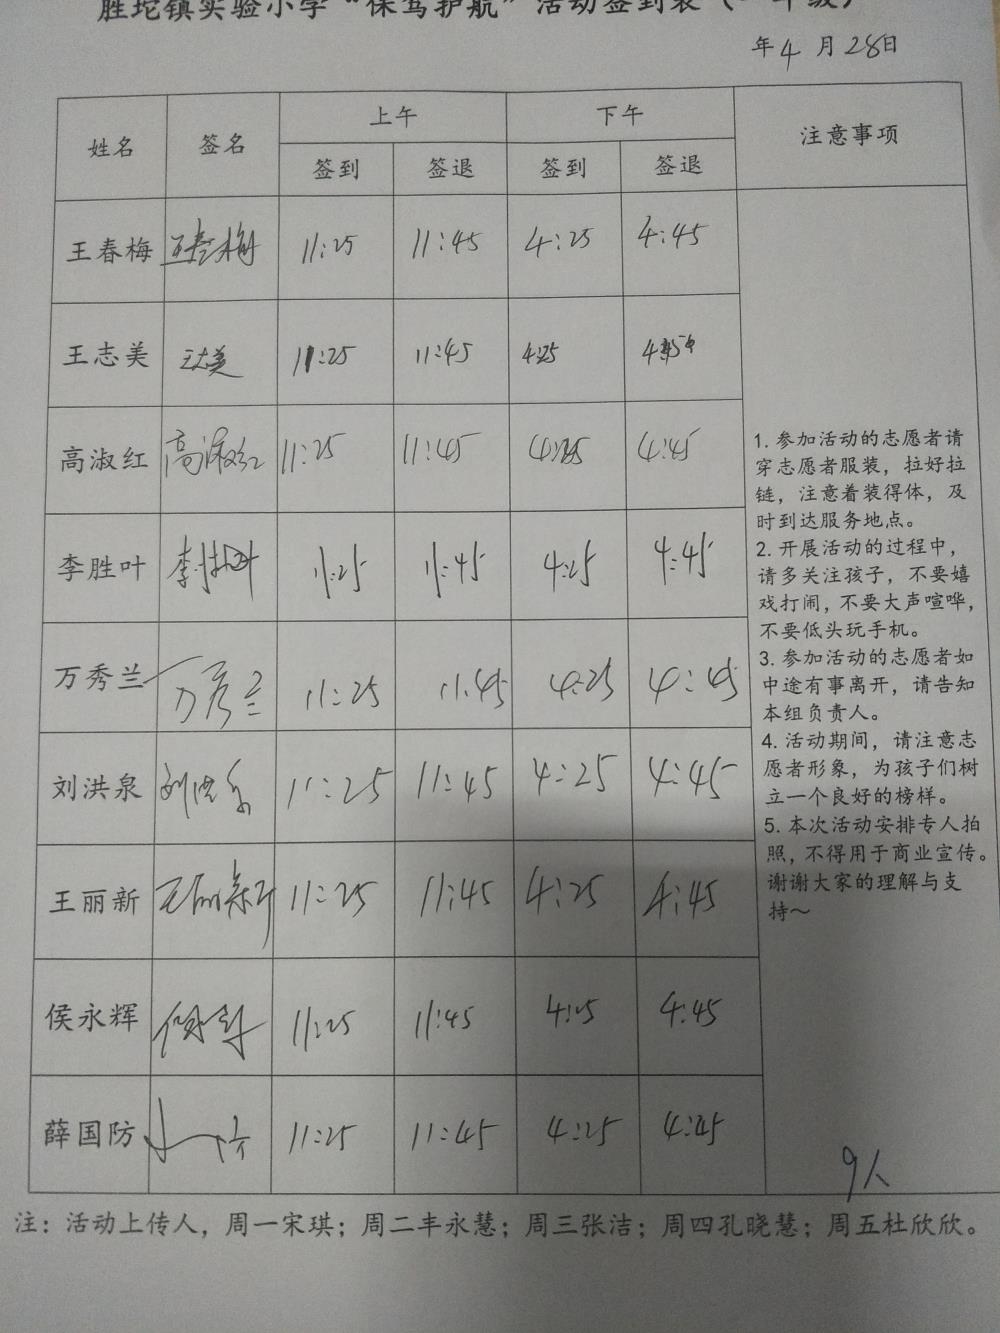 胜坨镇实验小学“保驾护航”活动签到表（一年级）
年4月28日
姓名 签名 上午 下午 注意事项
签到 签退 签到 签退
王春梅 王春梅 11:25 11:45 4:25 4:45
王志美 王志美 11:25 11:45 4:25 4:45
高淑红 高淑红 11:25 11:45 4:25 4:45
李胜叶 李胜叶 11:25 11:45 4:25 4:45
万秀兰 万秀兰 11:25 11:45 4:25 4:45
刘洪泉 刘洪泉 11:25 11:45 4:25 4:45
王丽新 王丽新 11:25 11:45 4:25 4:45
侯永辉 侯永辉 11:25 11:45 4:25 4:45
薛国防 11:25 11:45 4:25 4:45
1. 参加活动的志愿者请
穿志愿者服装，拉好拉
链，注意着装得体，及
时到达服务地点。
2. 开展活动的过程中，
请多关注孩子，不要嬉
戏打闹，不要大声喧哗，
不要低头玩手机。
3. 参加活动的志愿者如
中途有事离开，请告知
本组负责人。
4. 活动期间，请注意志
愿者形象，为孩子们树
立一个良好的榜样。
5. 本次活动安排专人拍
照，不得用于商业宣传。
谢谢大家的理解与支
持～
9人
注：活动上传人，周一宋琪；周二丰永慧；周三张洁；周四孔晓慧；周五杜欣欣。